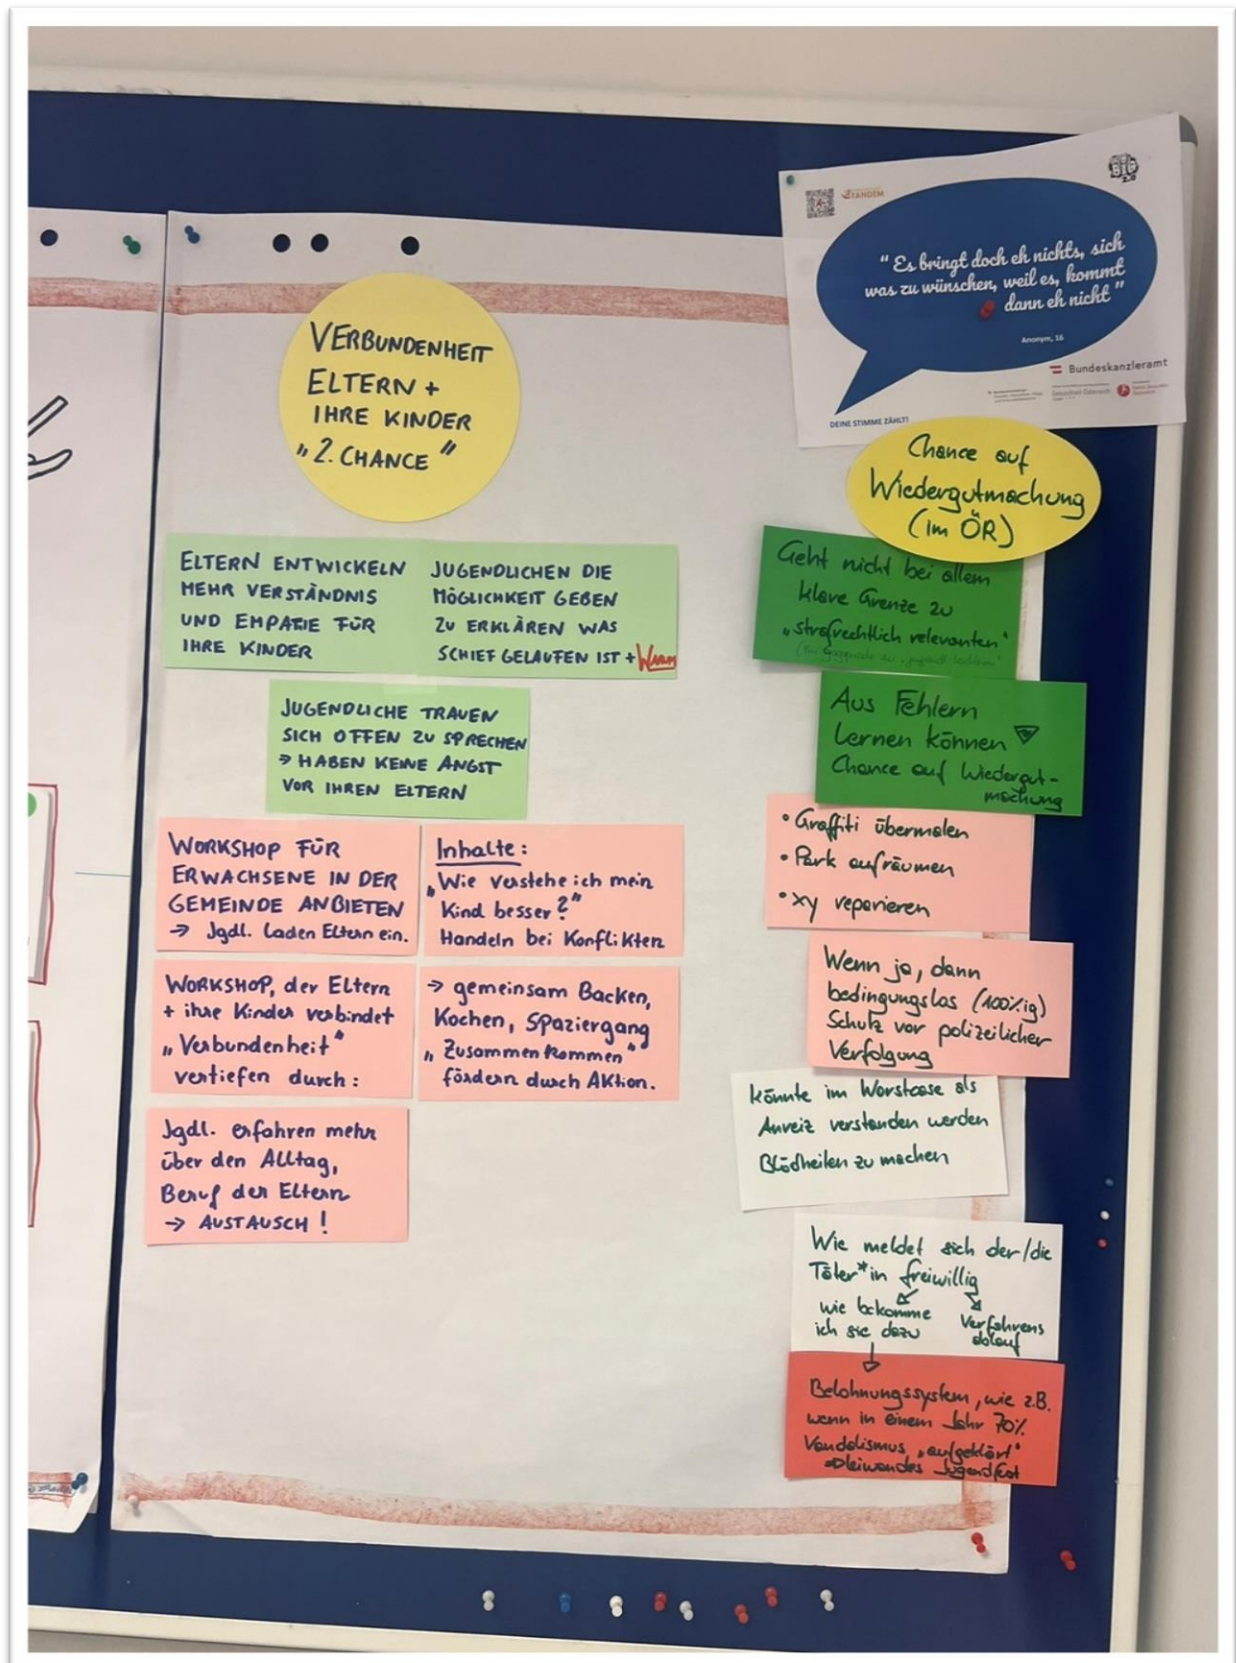 VERBUNDENHEIT
ELTERN +
IHRE KINDER
„2. CHANCE"
ELTERN ENTWICKELN
MEHR VERSTÄNDNIS
UND EMPATIE FÜR
IHRE KINDER
JUGENDLICHEN DIE
MÖGLICHKEIT GEBEN
ZU ERKLÄREN WAS
SCHIEF GELAUFEN IST + WARUM
JUGENDLICHE TRAUEN
SICH OFFEN ZU SPRECHEN
→ HABEN KEINE ANGST
VOR IHREN ELTERN
WORKSHOP FÜR
ERWACHSENE IN DER
GEMEINDE ANBIETEN
→ Jgdl. laden Eltern ein.
Inhalte:
„Wie verstehe ich mein
Kind besser?"
Handeln bei Konflikten
WORKSHOP, der Eltern
+ ihre Kinder verbindet
„Verbundenheit"
vertiefen durch:
→ gemeinsam Backen,
Kochen, Spaziergang
„Zusammenkommen"
fördern durch Aktion.
Jgdl. erfahren mehr
über den Alltag,
Beruf der Eltern
→ AUSTAUSCH!
TANDEM
"Es bringt doch eh nichts, sich
was zu wünschen, weil es, kommt
dann eh nicht"
Anonym, 16
Bundeskanzleramt
DEINE STIMME ZÄHLT!
Chance auf
Wiedergutmachung
(im ÖR)
Geht nicht bei allem
klare Grenze zu
„strafrechtlich relevanten"
Aus Fehlern
lernen können
Chance auf Wiedergut-
machung
• Graffiti übermalen
• Park aufräumen
• xy reparieren
Wenn ja, dann
bedingungslos (100%ig)
Schutz vor polizeilicher
Verfolgung
könnte im Worstcase als
Anreiz verstanden werden
Blödheiten zu machen
Wie meldet sich der/die
Täter*in freiwillig
wie bekomme
ich sie dazu
Verfahrens
ablauf
Belohnungssystem, wie z.B.
wenn in einem Jahr 70%
Vandalismus „aufgeklärt"
Jugendfest